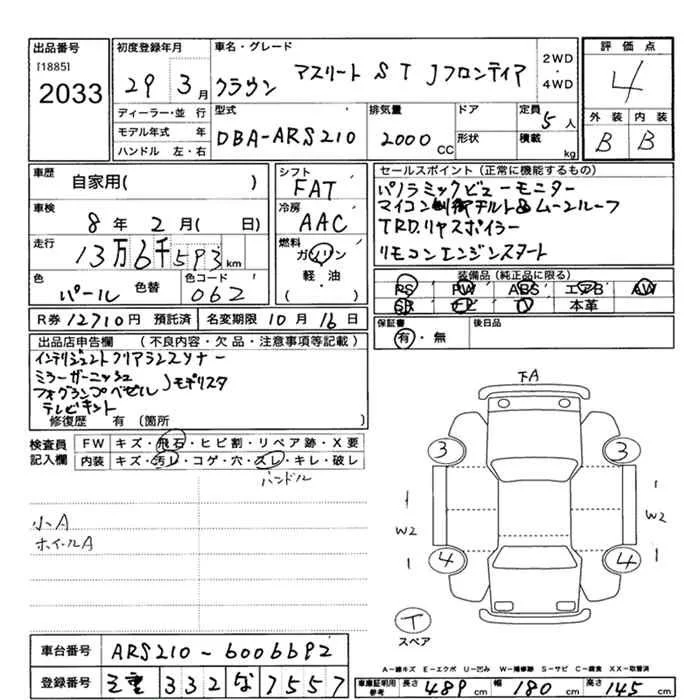 出品番号
[1885]
2033
初度登録年月
29 3月
車名・グレード
クラウン アスリート S T Jフロンティア
2WD
・
4WD
評価点
4
外装 内装
B B
ディーラー・並 行
モデル年式 年
ハンドル 左・右
型式
DBA-ARS210
排気量
2000 cc
ドア
形状
定員
5人
積載
kg
車歴
自家用( )
車検
8年 2月( 日)
走行
13万6千593km
色
パール
色替
色コード
062
シフト
FAT
冷房
AAC
燃料
ガソリン
軽・油
( )
セールスポイント(正常に機能するもの)
パノラミックビューモニター
マイコン制御チルト&ムーンルーフ
TRD.リヤスポイラー
リモコンエンジンスタート
装備品(純正品に限る)
PS PW ABS エアB AW
SR ナビ TV 本革
保証書
有・無
後日品
R券 12710円 預託済 名変期限 10月16日
出品店申告欄 (不良内容・欠品・注意事項等記載)
インテリジェントクリアランスソナー
ミラーガーニッシュ
フォグランプベゼル Jモデリスタ
テレビキット
修復歴 有(箇所
検査員
記入欄
FW キズ・飛石・ヒビ割・リペア跡・X要
内装 キズ・汚レ・コゲ・穴・スレ・キレ・破レ
ハンドル
小A
ホイールA
下A
3 3
1 1
W2 W2
1 1
4 4
T
スペア
車台番号 ARS210-6006692
登録番号 三重 332 な 7557
A-線キズ E-エクボ U-凹み W-補修跡 S-サビ C-腐食 XX-取替済
車庫証明用
参考
長さ 489cm 幅 180cm 高さ 145cm